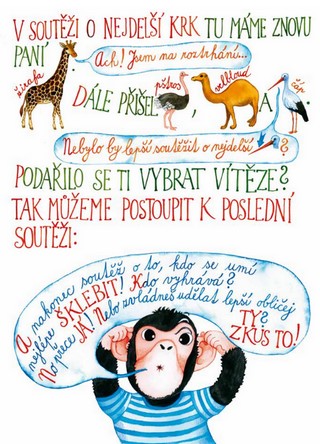 V SOUTĚŽI O NEJDELŠÍ KRK TU MÁME ZNOVU
PANÍ
žirafa
. Ach! Jsem na roztrhání...
DÁLE PŘIŠEL
pštros
,
velbloud
, A
čáp
.
Nebylo by lepší soutěžit o nejdelší
?
PODAŘILO SE TI VYBRAT VÍTĚZE?
TAK MŮŽEME POSTOUPIT K POSLEDNÍ
SOUTĚŽI:
A nakonec soutěž o to, kdo se umí
nejlépe ŠKLEBIT! Kdo vyhrává?
No přece JÁ! Nebo zvládneš udělat lepší obličej
TY?
ZKUS TO!